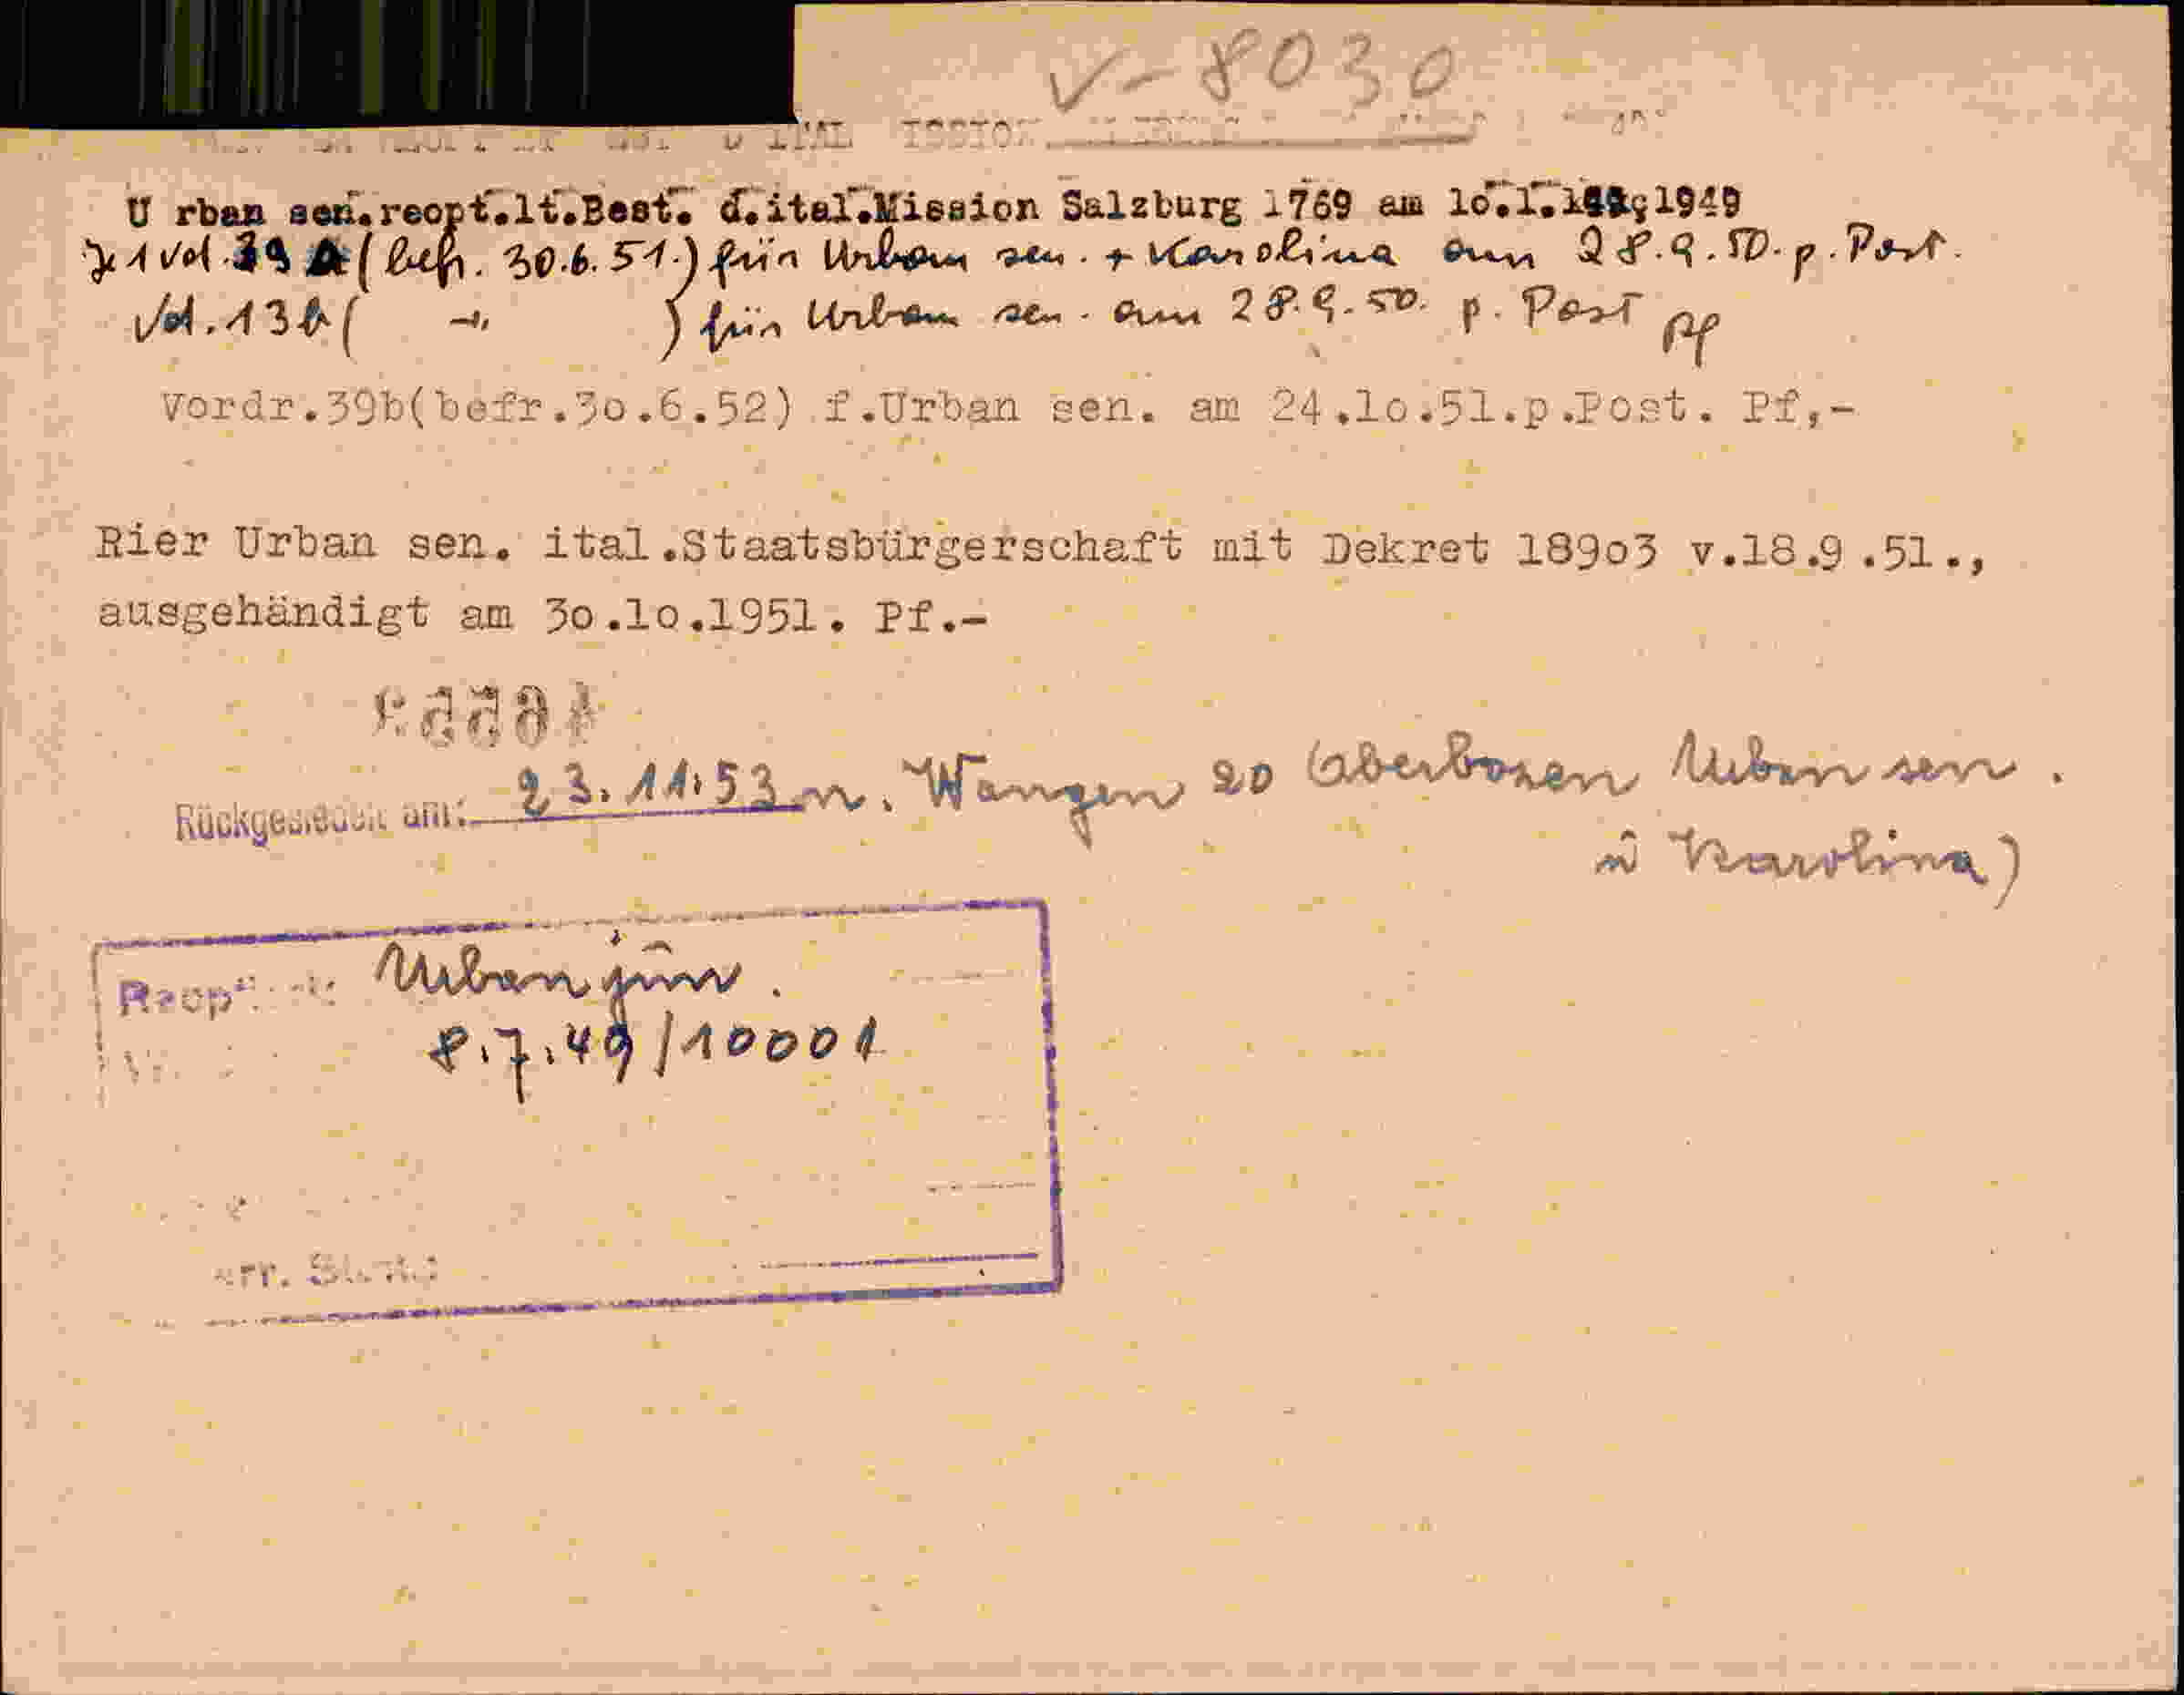 V-8030
U rban sen.reopt.lt.Best. d.ital.Mission Salzburg 1769 am 1o.1. 1949
je 1 Vd. 39 A (befr. 30.6.51.) für Urban sen. + Karolina am 28.9.50. p. Post.
Vd. 13b ( -"- ) für Urban sen. am 28.9.50. p. Post Pf
Vordr.39b(befr.3o.6.52) f.Urban sen. am 24.1o.51.p.Post. Pf,-
Rier Urban sen. ital.Staatsbürgerschaft mit Dekret 189o3 v.18.9.51.,
ausgehändigt am 3o.1o.1951. Pf.-
Rückgesiedelt am: 23.11.53 n. Wangen 20 Oberbozen Urban sen.
u Karolina)
Urban jun.
8.7.49/10001